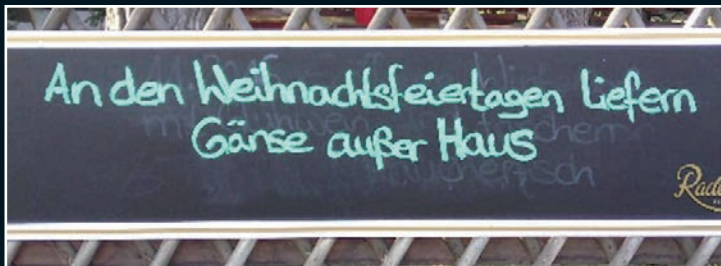 An den Weihnachtsfeiertagen liefern
Gänse außer Haus